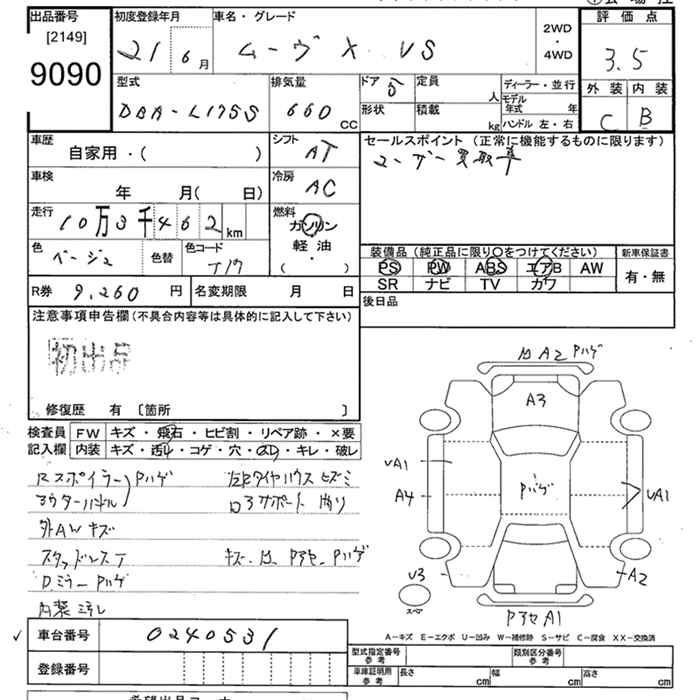 出品番号 初度登録年月 車名・グレード 評価点
[2149]
9090
21 6月 ムーヴ X VS
2WD
・
4WD
3.5
型式 排気量 ドア 定員 ディーラー・並行 外装 内装
DBA-L175S 660 CC 5 人 モデル年式 年 C B
形状 積載 kg ハンドル 左・右
車歴 シフト セールスポイント (正常に機能するものに限ります)
自家用・( ) AT ユーザー買取車
車検 冷房
年 月( 日) AC
走行 燃料
10万3千462 km ガソリン
軽油
( ・ )
色 ベージュ 色替 色コード T17
装備品 (純正品に限り○をつけてください) 新車保証書
PS PW ABS エアB AW 有・無
SR ナビ TV カワ
R券 9,260 円 名変期限 月 日 後日品
注意事項申告欄(不具合内容等は具体的に記入して下さい)
初出品
修復歴 有 〔箇所 〕
検査員 FW キズ・飛石・ヒビ割・リペア跡・×要
記入欄 内装 キズ・汚れ・コゲ・穴・スレ・キレ・破レ
Rスポイラー Pハゲ
アウターハンドル
外AWキズ
スタッドレスT キズ、凹、Pアセ、Pハゲ
D.ミラーPハゲ
内装汚レ
凹A2 Pハゲ
A3
UA1
A4
Pハゲ
UA1
U3
A2
スペア
PアセA1
A-キズ E-エクボ U-凹み W-補修跡 S-サビ C-腐食 XX-交換済
✓ 車台番号 0240531
登録番号
型式指定番号 参考 類別区分番号 参考
車庫証明用 参考 長さ cm 幅 cm 高さ cm